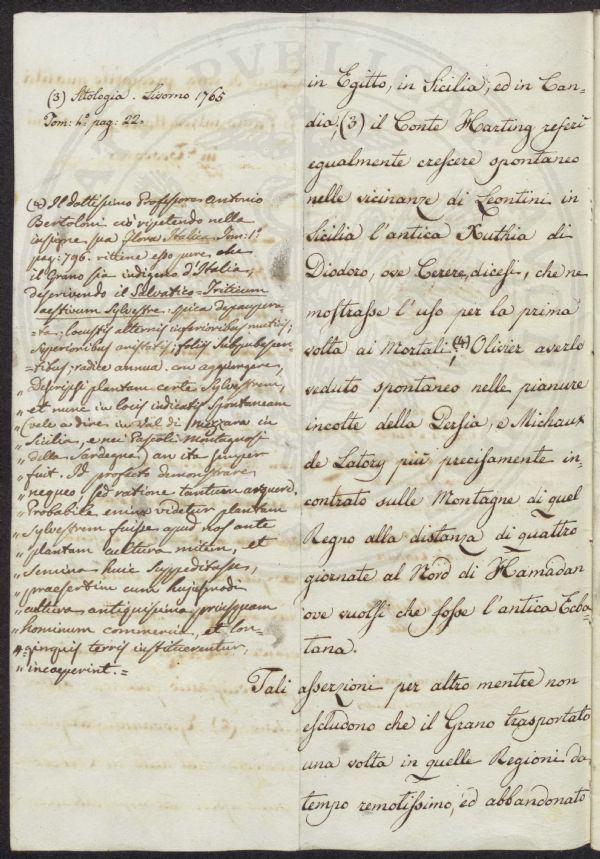 (3) Sitologia. Livorno 1765
Tom: 1.º pag: 22.
(4) Il dottissimo Professore Antonio
Bertoloni ciò ripetendo nella
insigne sua flora Italica Tom: 1.º
pag: 796. ritiene esso pure, che
il Grano sia indigeno d'Italia,
descrivendo il Salvatico = Triticum
aestivum Sylvestre: spica depaupera=
=ta: locustis alternis inferioribus muticis;
superioribus aristatis; foliis subpubescen=
=tibus; radice annua. an aggiungere,
„ Descripsi plantam certe Sylvestrem,
„ et nunc in locis indicatis Spontaneam
„ (vale a dire in Val di Mazzara in
„ Sicilia, e nei Pascoli Montagnosi
„ della Sardegna) an ita semper
„ fuit. Id profecto demonstrare
„ nequeo, sed ratione tantum arguere.
„ Probabile enim videtur plantam
„ sylvestrem fuisse apud nos ante
„ plantam cultura mitem, et
„ semina huic suppeditasse,
„ praesertim cum hujusmodi
„ cultura antiquissima priusquam
„ hominum commercia, et lon=
„ =ginquis terris instituerentur,
„ incaeperint. =
in Egitto, in Sicilia, ed in Can=
dia, (3) il Conte Harting riferì
egualmente crescere spontaneo
nelle vicinanze di Leontini in
Sicilia l'antica Xuthia di
Diodoro, ove Cerere, dicesi, che ne
mostrasse l'uso per la prima
volta ai Mortali, (4) Olivier averlo
veduto spontaneo nelle pianure
incolte della Persia, e Michaux
de Latory più precisamente in=
contrato sulle Montagne di quel
Regno alla distanza di quattro
giornate al Nord di Hamadan
ove vuolsi che fosse l'antica Ecba=
tana.
Tali asserzioni per altro mentre non
escludono che il Grano trasportato
una volta in quelle Regioni da
tempo remotissimo, ed abbandonato